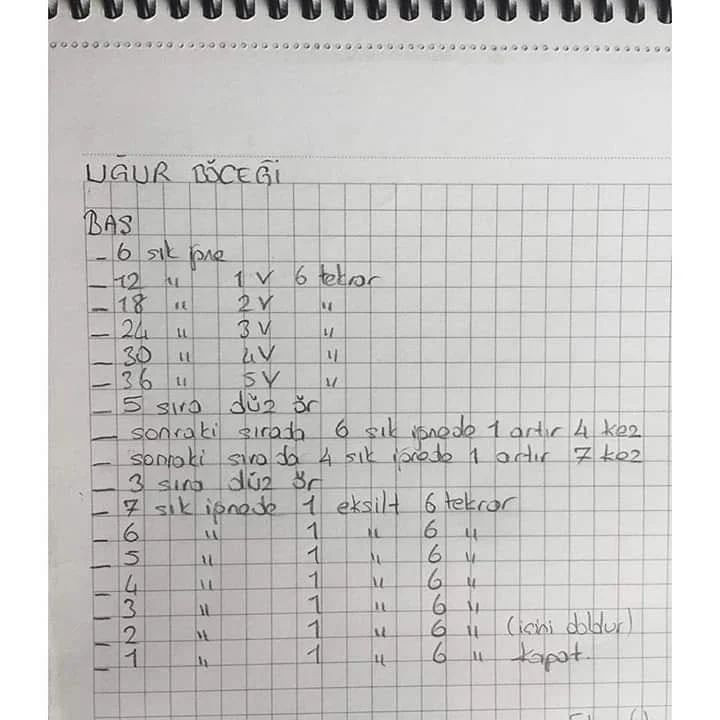 UĞUR BÖCEĞİ
BAŞ
- 6 sık iğne
- 12 " 1 V 6 tekrar
- 18 " 2 V "
- 24 " 3 V "
- 30 " 4 V "
- 36 " 5 V "
- 5 sıra düz ör
- sonraki sırada 6 sık iğnede 1 artır 4 kez
- sonraki sırada 4 sık iğnede 1 artır 7 kez
- 3 sıra düz ör
- 7 sık iğnede 1 eksilt 6 tekrar
- 6 " 1 " 6 "
- 5 " 1 " 6 "
- 4 " 1 " 6 "
- 3 " 1 " 6 "
- 2 " 1 " 6 " (içini doldur)
- 1 " 1 " 6 " kapat.